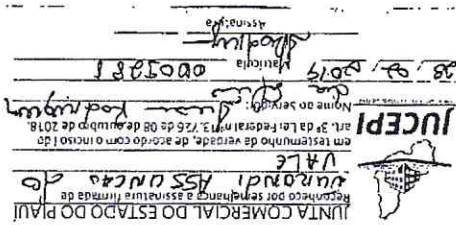 JUNTA COMERCIAL DO ESTADO DO PIAUÍ
Reconheço por semelhança a assinatura firmada de
ASSUNCAO do
VALE
em testemunho da verdade, de acordo com o inciso I do
art. 3º da Lei Federal nº 13.726 de 08 de outubro de 2018.
JUCEPI
Nome do servidor: Rodrigues
28, 02, 2019
Matrícula
Assinatura